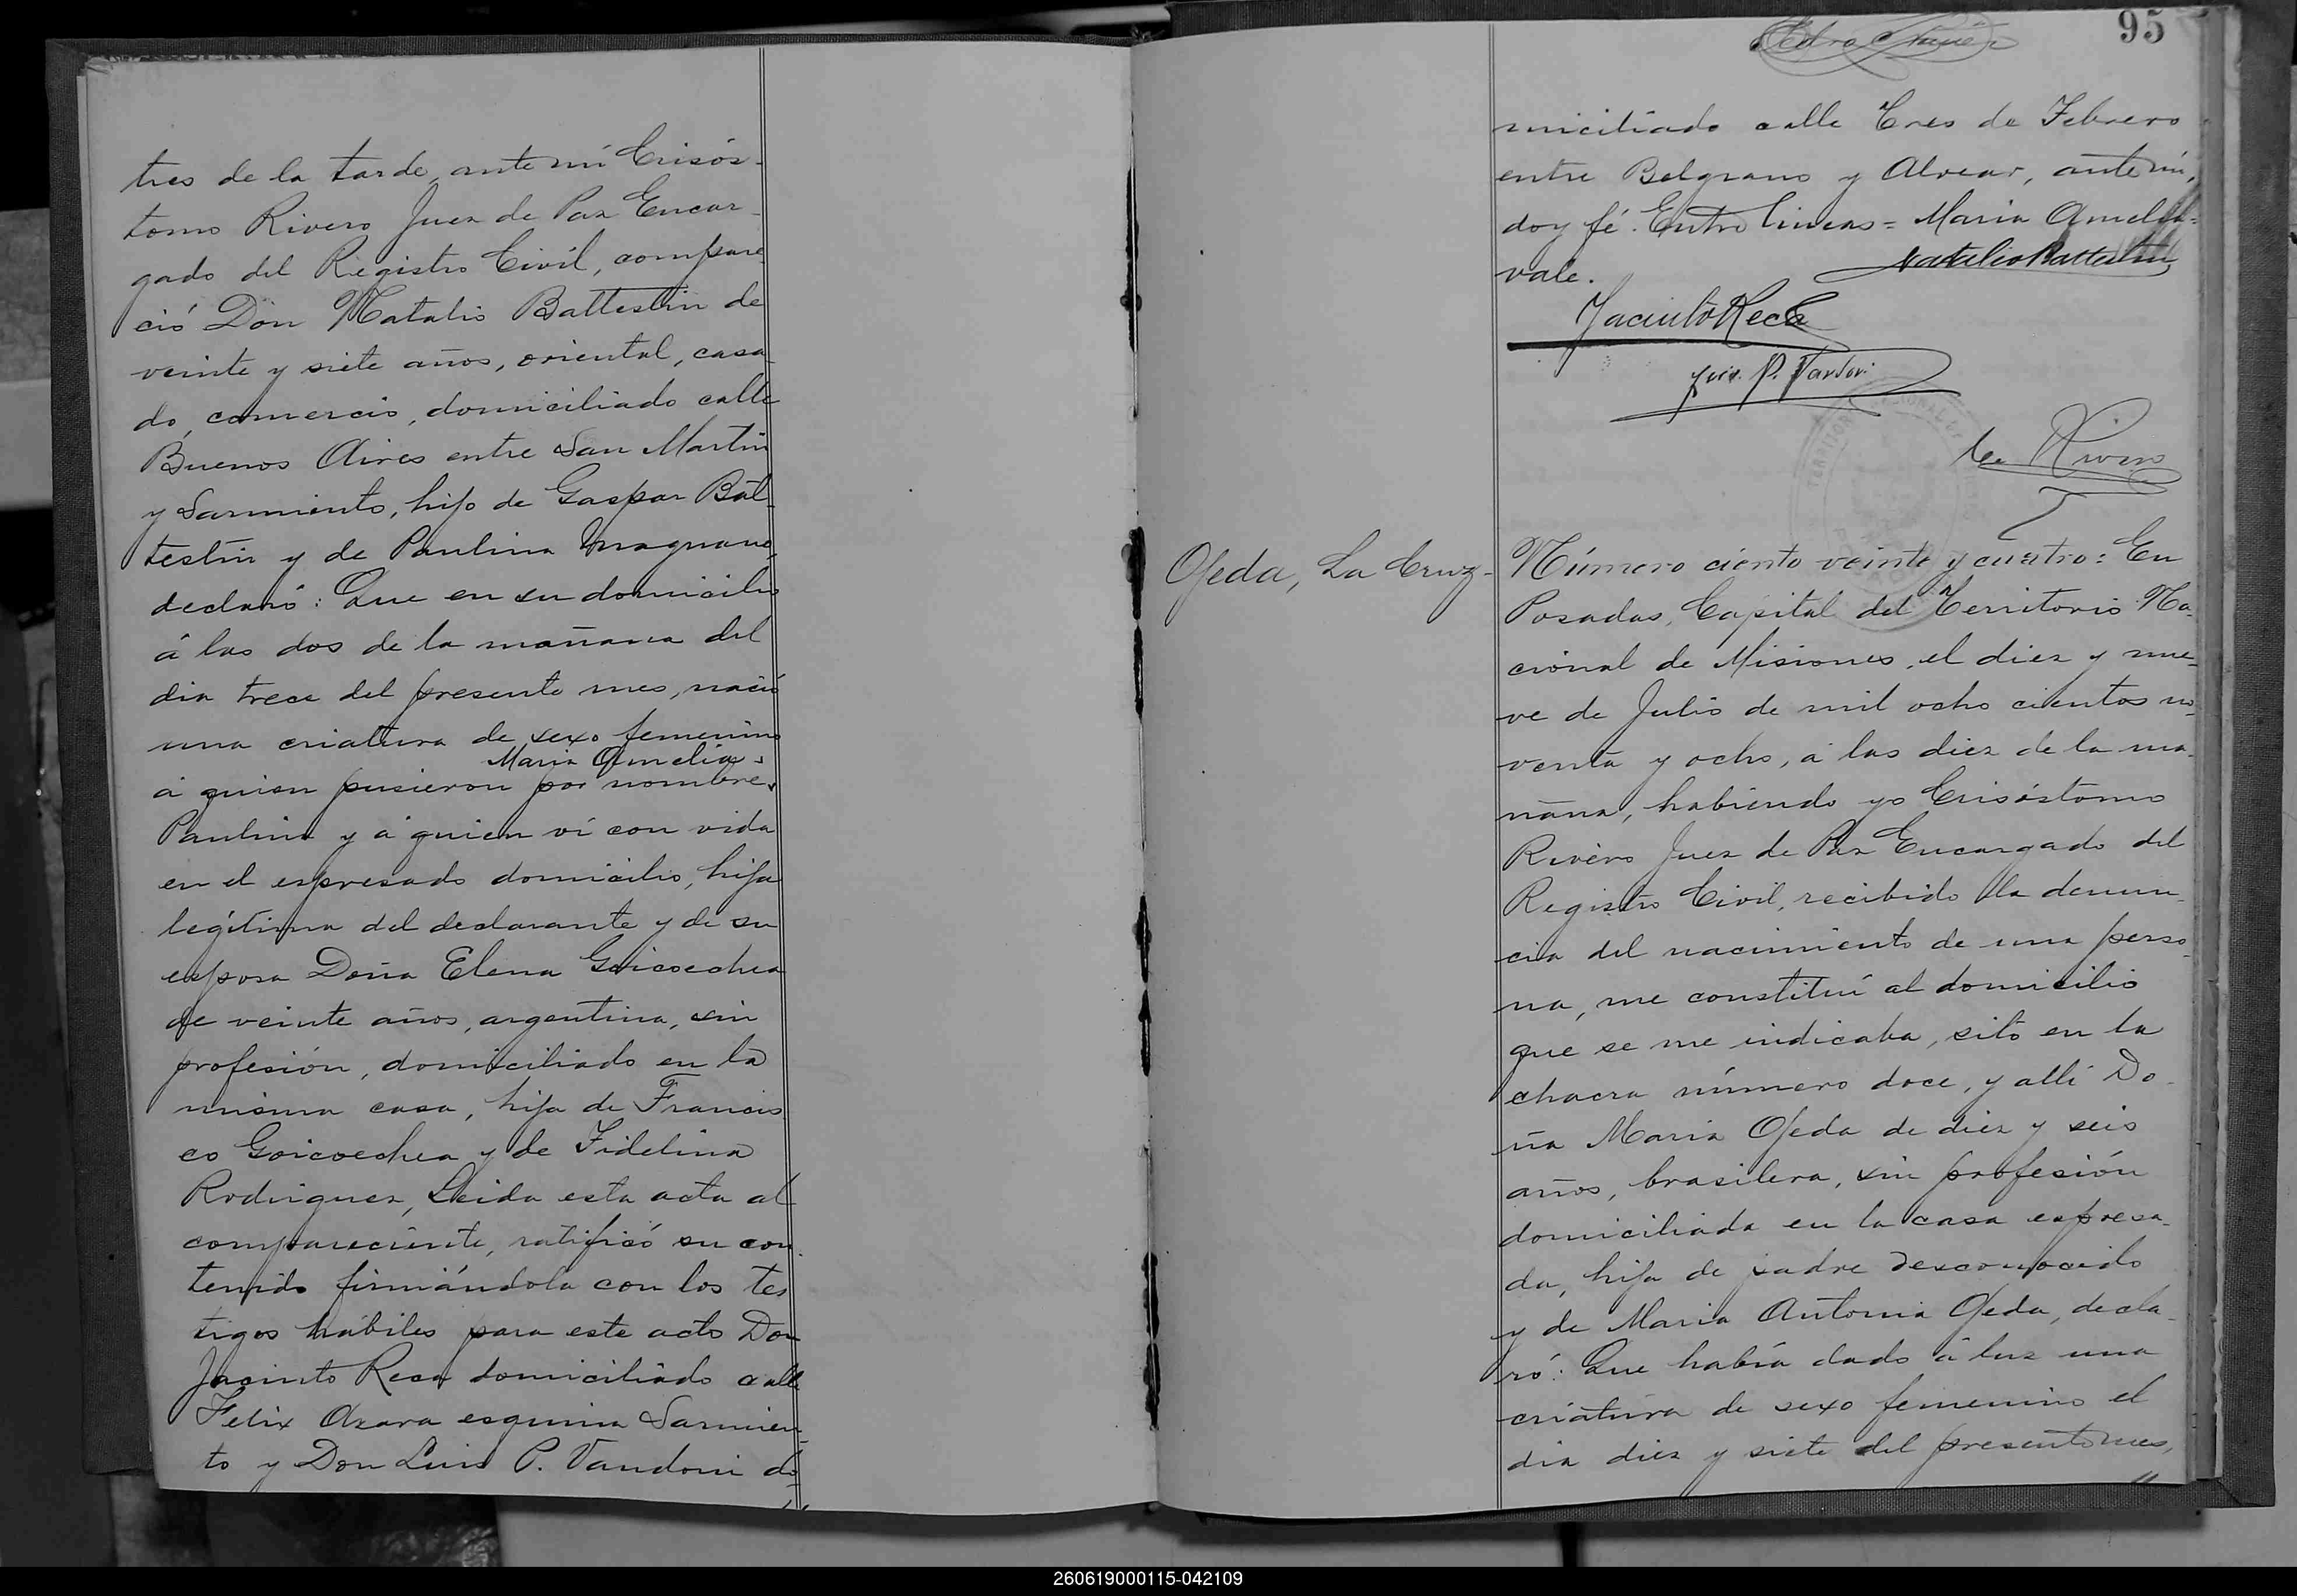 tres de la tarde, ante mí Crisós-
tomo Rivero Juez de Paz Encar-
gado del Registro Civil, compare-
ció Don Natalio Battestin de
veinte y siete años, oriental, casa-
do, comercio, domiciliado calle
Buenos Aires entre San Martin
y Sarmiento, hijo de Gaspar Bat-
testin y de Paulina
declaró: Que en su domicilio
á las dos de la mañana del
dia trece del presente mes, nació
una criatura de sexo femenino
Maria Amelia
á quien pusieron por nombre
Paulina y á quien ví con vida
en el espresado domicilio, hija
legítima del declarante y de su
esposa Doña Elena Goicoechea
de veinte años, argentina, sin
profesión, domiciliado en la
misma casa, hija de Francis
co Goicoechea y de Fidelina
Rodriguez, Leida esta acta al
compareciente, ratificó su con-
tenido firmándola con los tes
tigos hábiles para este acto Don
Jacinto Reca domiciliado calle
Felix Azara esquina Sarmien-
to y Don Luis P. Vandoni do-
95
miciliado calle Tres de Febrero
entre Belgrano y Alvear, ante mí,
doy fé. Entre lineas = Maria Amelia =
vale.
Natalio Battestin
Jacinto Reca
Luis P. Vandoni
C. Rivero
Ojeda, La Cruz-
Número ciento veinte y cuatro: En
Posadas, Capital del Territorio Na-
cional de Misiones, el diez y nue-
ve de Julio de mil ocho cientos no-
venta y ocho, á las diez de la ma-
ñana, habiendo yo Crisóstomo
Rivero Juez de Paz Encargado del
Registro Civil, recibido la denun-
cia del nacimiento de una perso-
na, me constituí al domicilio
que se me indicaba, sito en la
chacra número doce, y allí Do-
ña Maria Ojeda de diez y seis
años, brasilera, sin profesión
domiciliada en la casa espresa-
da, hija de padre desconocido
y de Maria Antonia Ojeda, decla-
ró: Que había dado á luz una
criatura de sexo femenino el
dia diez y siete del presente mes,
260619000115-042109